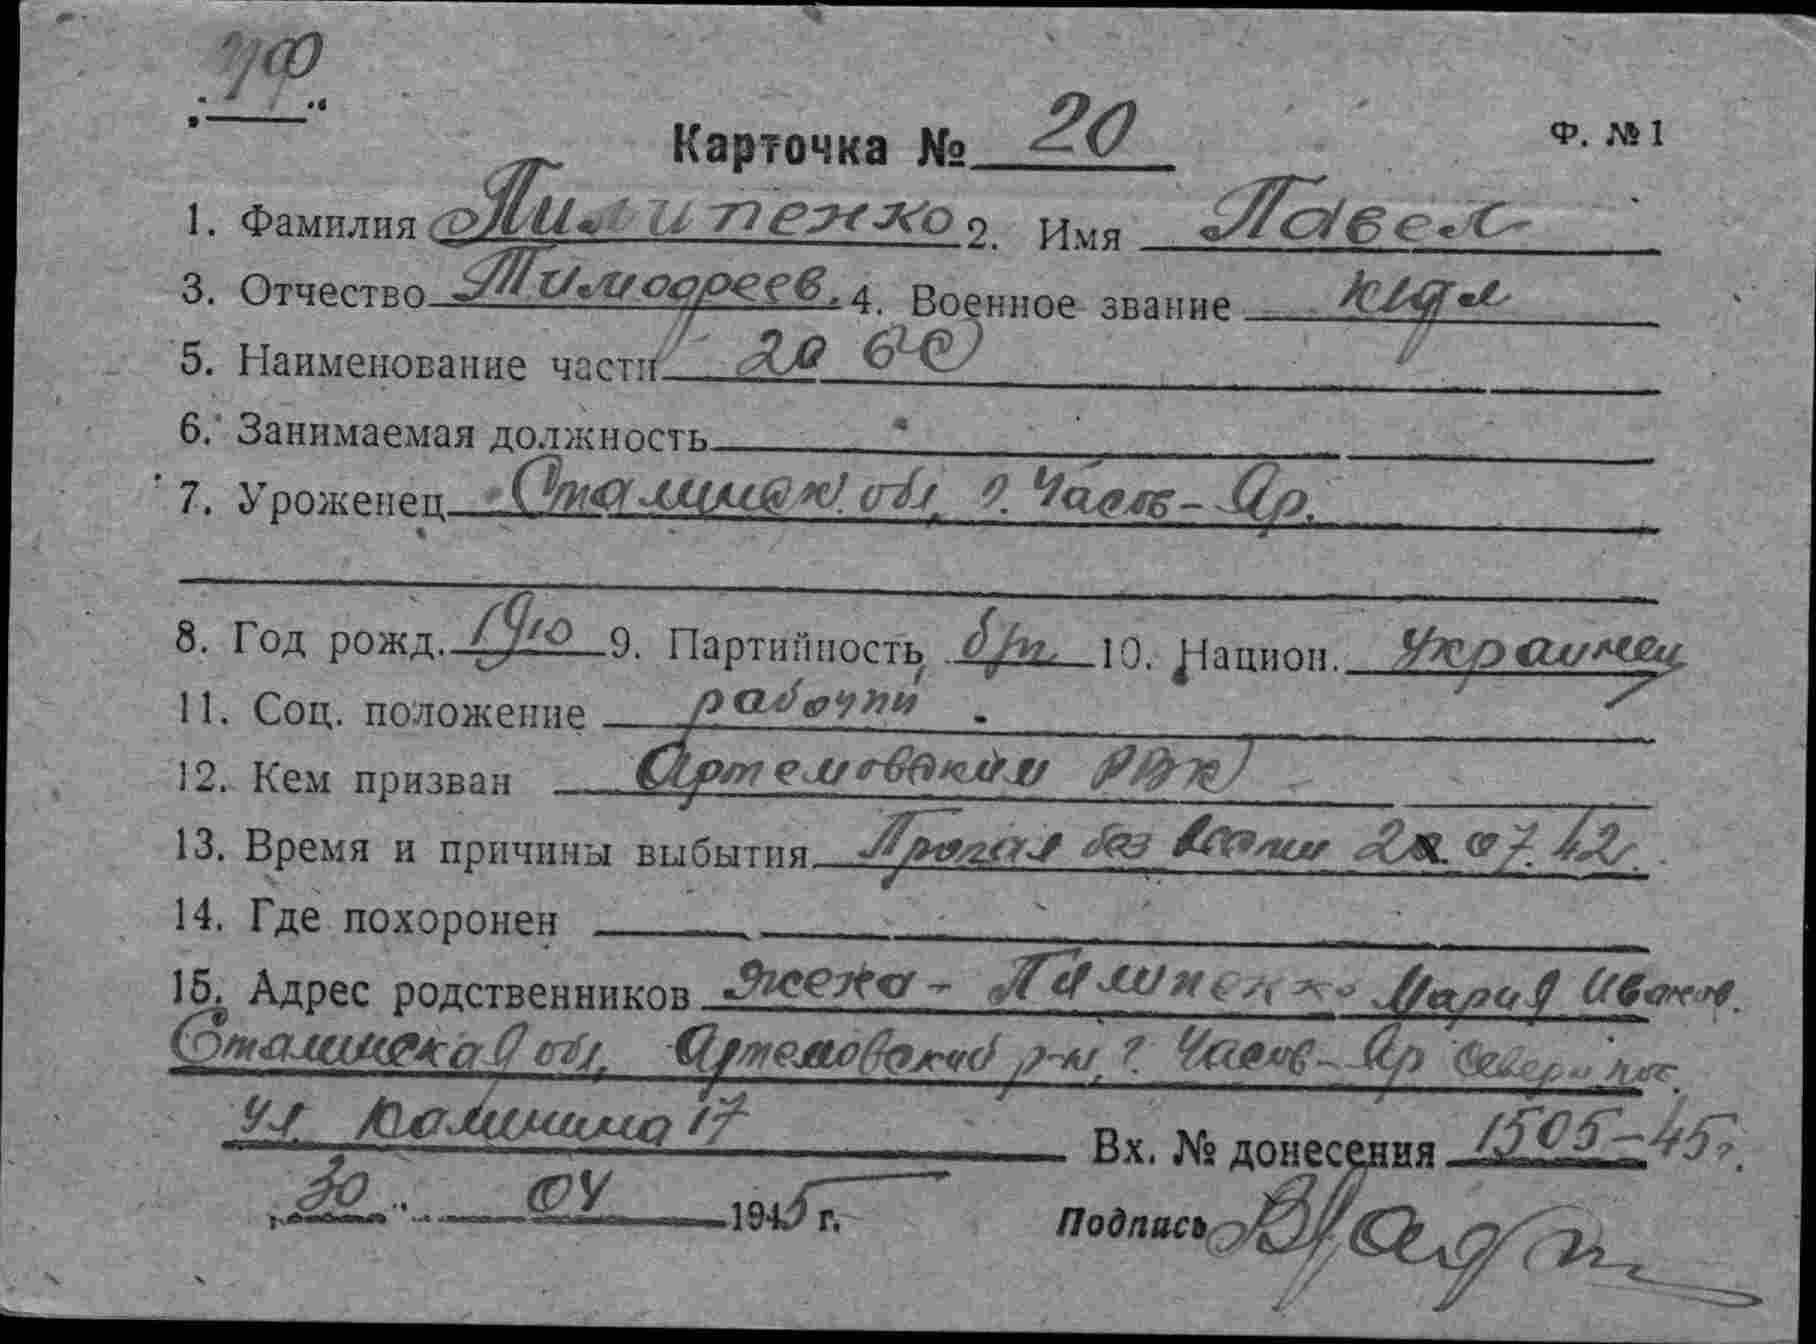 Карточка № 20
Ф. № 1
1. Фамилия Пилипенко 2. Имя Павел
3. Отчество Тимофеев. 4. Военное звание
5. Наименование части 20
6. Занимаемая должность
7. Уроженец Сталинск. обл. г. Часов-Яр.
8. Год рожд. 1910 9. Партийность б/п. 10. Национ. Украинец
11. Соц. положение рабочий
12. Кем призван Артемовским РВК
13. Время и причины выбытия Пропал без вести 07.42г.
14. Где похоронен
15. Адрес родственников Жена - Пилипенко Мария Иванов.
Сталинская обл, Артемовский р-н, г. Часов-Яр пос.
ул. Калинина 17
Вх. № донесения 1505-45г.
30 " 04 1945 г.
Подпись